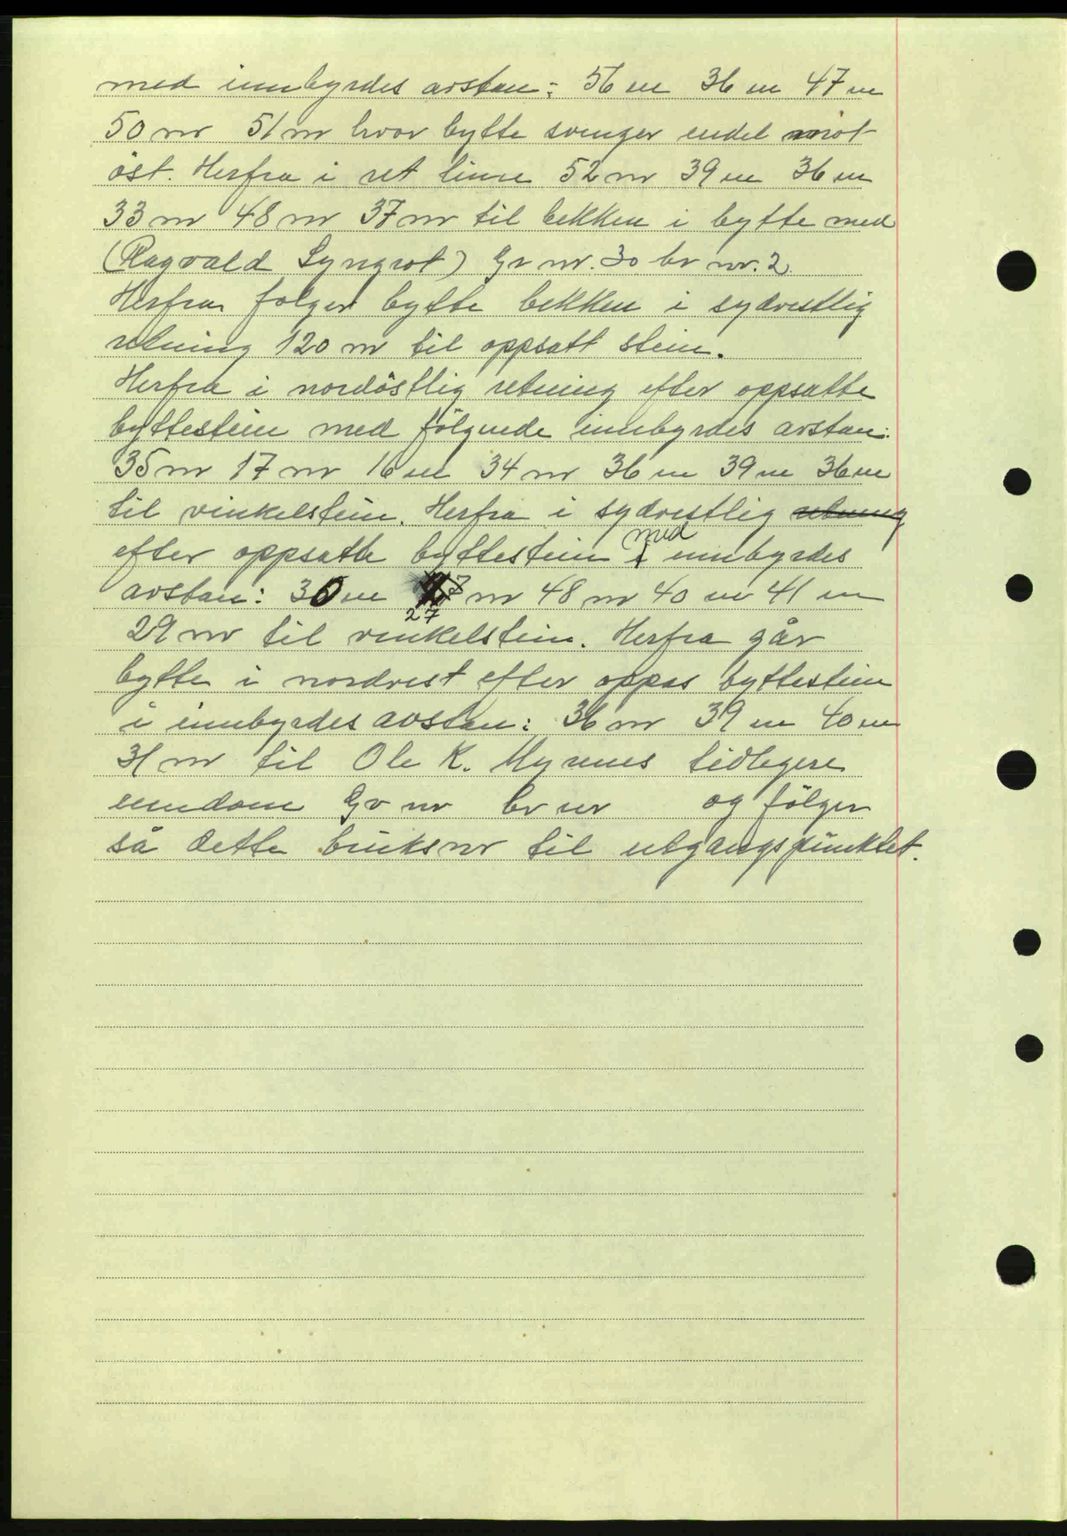 med innbyrdes avstan: 56 m 36 m 47 m
50 m 51 m hvor bytte svinger endel mot
öst. Herfra i ret linie 52 m 39 m 36 m
33 m 48 m 37 m til bekken i bytte med
(Ragvald Lyngrot) Gr nr. 30 br nr. 2.
Herfra fölger bytte bekken i sydvestlig
retning 120 m til oppsatt stein.
Herfra i nordöstlig retning efter oppsatte
byttestein med fölgende innbyrdes avstan:
35 m 17 m 16 m 34 m 36 m 39 m 36 m
til vinkelstein. Herfra i sydvestlig retning
efter oppsatte byttestein med innbyrdes
avstan: 30 m 27 m 48 m 40 m 41 m
29 m til vinkelstein. Herfra går
bytte i nordvest efter oppas byttestein
i innbyrdes avstan: 36 m 39 m 40 m
31 m til Ole K. Myrenes tidligere
eiendom Gr nr br nr og fölger
så dette bruksnr til utgangspunktet.